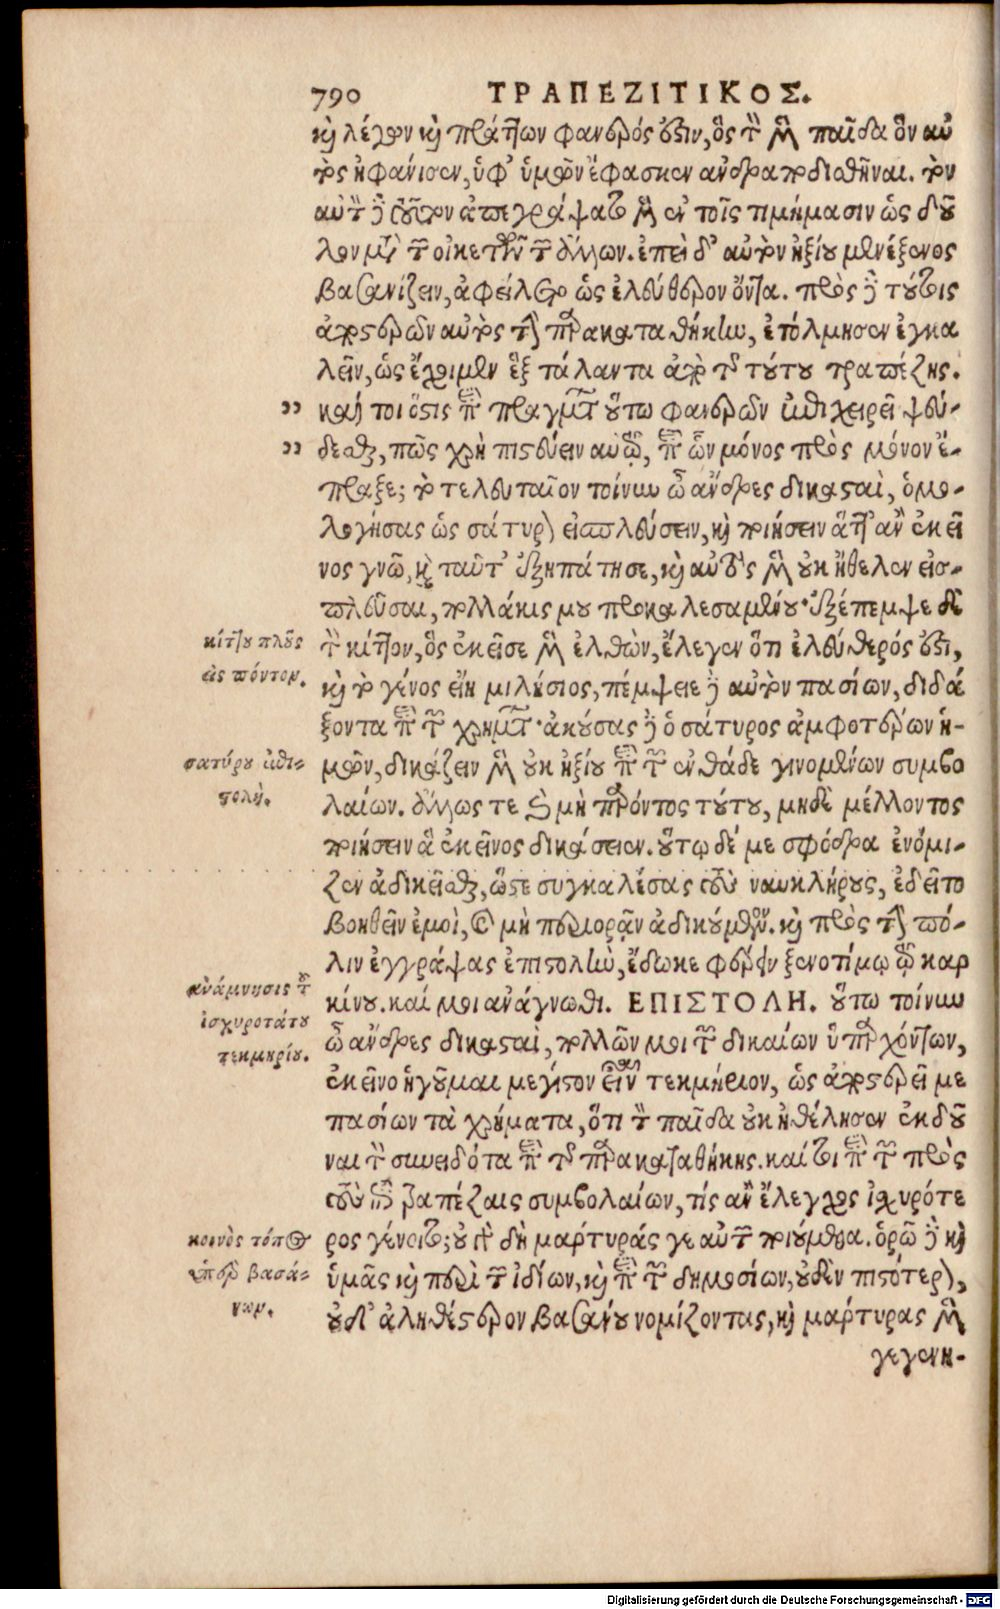 790 ΤΡΑΠΕΖΙΤΙΚΟΣ.
καὶ λέγων καὶ πράττων φανερός ἐστιν, ὃς τὸν μὲν παῖδα ὃν αὐ
τὸς ἠφάνισεν, ὑφ' ἡμῶν ἔφασκεν ἀνδραποδισθῆναι. τὸν
αὐτὸν δὲ τοῦτον ἀπεγράψατο μὲν ἐν τοῖς τιμήμασιν ὡς δοῦ
λον μετὰ τῶν οἰκετῶν τῶν ἄλλων. ἐπεὶ δ' αὐτὸν ἠξίου μενέξενος
βασανίζειν, ἀφείλετο ὡς ἐλεύθερον ὄντα. πρὸς δὲ τούτοις
ἀποστερῶν αὐτὸς τὴν παρακαταθήκην, ἐτόλμησεν ἐγκα
λεῖν, ὡς ἔχοιμεν ἓξ τάλαντα ἀπὸ τῆς τούτου τραπέζης.
" καίτοι ὅστις περὶ πραγμάτων οὕτω φανερῶν ἐπιχειρεῖ ψεύ-
" δεσθαι, πῶς χρὴ πιστεύειν αὐτῷ, περὶ ὧν μόνος πρὸς μόνον ἔ-
πραξε; τὸ τελευταῖον τοίνυν ὦ ἄνδρες δικασταὶ, ὁμο-
λογήσας ὡς σάτυρον εἰσπλεύσειν, καὶ ποιήσειν ἅττ' ἂν ἐκεῖ
νος γνῷ, καὶ ταῦτ' ἐξηπάτησε, καὶ αὐτὸς μὲν οὐκ ἤθελεν εἰσ-
πλεῦσαι, πολλάκις μου προκαλεσαμένου· ἐξέπεμψε δὲ
τὸν κίττον, ὃς ἐκεῖσε μὲν ἐλθὼν, ἔλεγεν ὅτι ἐλεύθερός ἐστι,
καὶ τὸ γένος εἴη μιλήσιος, πέμψειε δὲ αὐτὸν πασίων, διδά
ξοντα περὶ τῶν χρημάτων· ἀκούσας δὲ ὁ σάτυρος ἀμφοτέρων ἡ-
μῶν, δικάζειν μὲν οὐκ ἠξίου περὶ τῶν ἐνθάδε γινομένων συμβο
λαίων. ἄλλως τε καὶ μὴ παρόντος τούτου, μηδὲ μέλλοντος
ποιήσειν ἃ ἐκεῖνος δικάσειεν. οὕτω δέ με σφόδρα ἐνόμι-
ζεν ἀδικεῖσθαι, ὥστε συγκαλέσας τοὺς ναυκλήρους, ἐδεῖτο
βοηθεῖν ἐμοὶ, καὶ μὴ περιορᾷν ἀδικούμενον. καὶ πρὸς τὴν πό-
λιν ἐγγράψας ἐπιστολὴν, ἔδωκε φέρειν ξενοτίμῳ τῷ καρ
κίνου. καί μοι ἀνάγνωθι. ΕΠΙΣΤΟΛΗ. οὕτω τοίνυν
ὦ ἄνδρες δικασταὶ, πολλῶν μοι τῶν δικαίων ὑπαρχόντων,
ἐκεῖνο ἡγοῦμαι μέγιστον εἶναι τεκμήριον, ὡς ἀποστερεῖ με
πασίων τὰ χρήματα, ὅτι τὸν παῖδα οὐκ ἠθέλησεν ἐκδοῦ
ναι τὸν συνειδότα περὶ τῆς παρακαταθήκης. καίτοι περὶ τῶν πρὸς
τοὺς ἐπὶ ταῖς τραπέζαις συμβολαίων, τίς ἂν ἔλεγχος ἰσχυρότε
ρος γένοιτο; οὐ γὰρ δὴ μάρτυράς γε αὐτῶν ποιούμεθα. ὁρῶ δὲ καὶ
ὑμᾶς καὶ περὶ τῶν ἰδίων, καὶ περὶ τῶν δημοσίων, οὐδὲν πιστότερον,
οὐδ' ἀληθέστερον βασάνου νομίζοντας, καὶ μάρτυρας μὲν
γεγενη-
κίττου πλοῦς
εἰς πόντον.
σατύρου ἐπι-
στολή.
ἀνάμνησις τοῦ
ἰσχυροτάτου
τεκμηρίου.
κοινὸς τόπος
ὑπὲρ βασά-
νων.
Digitalisierung gefördert durch die Deutsche Forschungsgemeinschaft - DFG